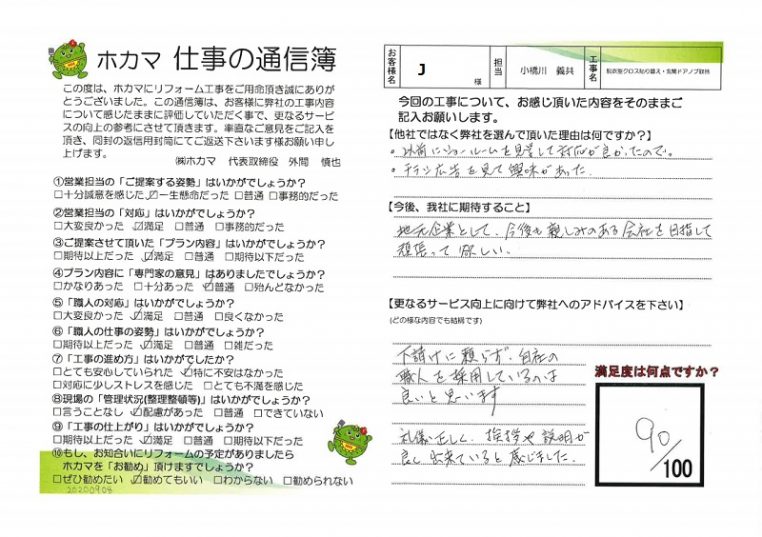 ホカマ 仕事の通信簿
この度は、ホカマにリフォーム工事をご用命頂き誠にありが
とうございました。この通信簿は、お客様に弊社の工事内容
について感じたままに評価していただく事で、更なるサービ
スの向上の参考にさせて頂きます。率直なご意見をご記入を
頂き、同封の返信用封筒にてご返送下さいます様お願い申し
上げます。
㈱ホカマ 代表取締役 外間 慎也
①営業担当の「ご提案する姿勢」はいかがでしょうか?
□十分誠意を感じた ☑一生懸命だった □普通 □事務的だった
②営業担当の「対応」はいかがでしょうか?
□大変良かった ☑満足 □普通 □事務的だった
③ご提案させて頂いた「プラン内容」はいかがでしょうか?
□期待以上だった ☑満足 □普通 □期待以下だった
④プラン内容に「専門家の意見」はありましたでしょうか?
□かなりあった □十分あった ☑普通 □殆んどなかった
⑤「職人の対応」はいかがでしょうか?
□大変良かった ☑満足 □普通 □良くなかった
⑥「職人の仕事の姿勢」はいかがでしょうか?
□期待以上だった ☑満足 □普通 □雑だった
⑦「工事の進め方」はいかがでしたか?
□とても安心していられた ☑特に不安はなかった
□対応に少しストレスを感じた □とても不満を感じた
⑧現場の「管理状況(整理整頓等)」はいかがでしょうか?
□言うことなし ☑配慮があった □普通 □できていない
⑨「工事の仕上がり」はいかがでしょうか?
□期待以上だった ☑満足 □普通 □期待以下だった
⑩もし、お知合いにリフォームの予定がありましたら
ホカマを「お勧め」頂けますでしょうか?
□ぜひ勧めたい ☑勧めてもいい □わからない □勧められない
20200908
お客様名 J 様 担当 小橋川 義共 工事名 脱衣室クロス貼り替え・玄関ドアノブ取替
今回の工事について、お感じ頂いた内容をそのままご
記入お願いします。
【他社ではなく弊社を選んで頂いた理由は何ですか?】
・以前にショールームを見学して対応が良かったので。
・チラシ広告を見て興味があった。
【今後、我社に期待すること】
地元企業として、今後も親しみのある会社を目指して
頑張って欲しい。
【更なるサービス向上に向けて弊社へのアドバイスを下さい】
(どの様な内容でも結構です)
下請けに頼らず、自社の
職人を採用しているのは
良いと思います
礼儀正しく、挨拶や説明が
良く出来ていると感じました。
満足度は何点ですか?
90/100